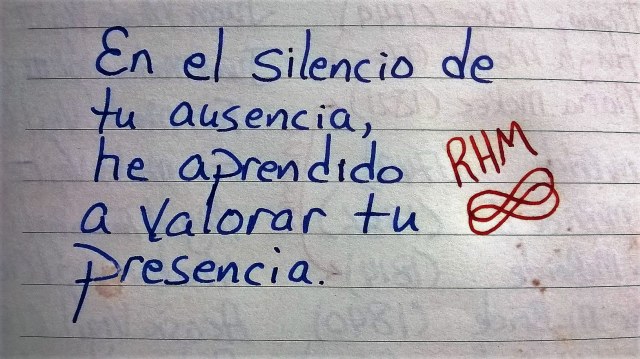 En el silencio de
tu ausencia,
he aprendido
a valorar tu
presencia.
RHM